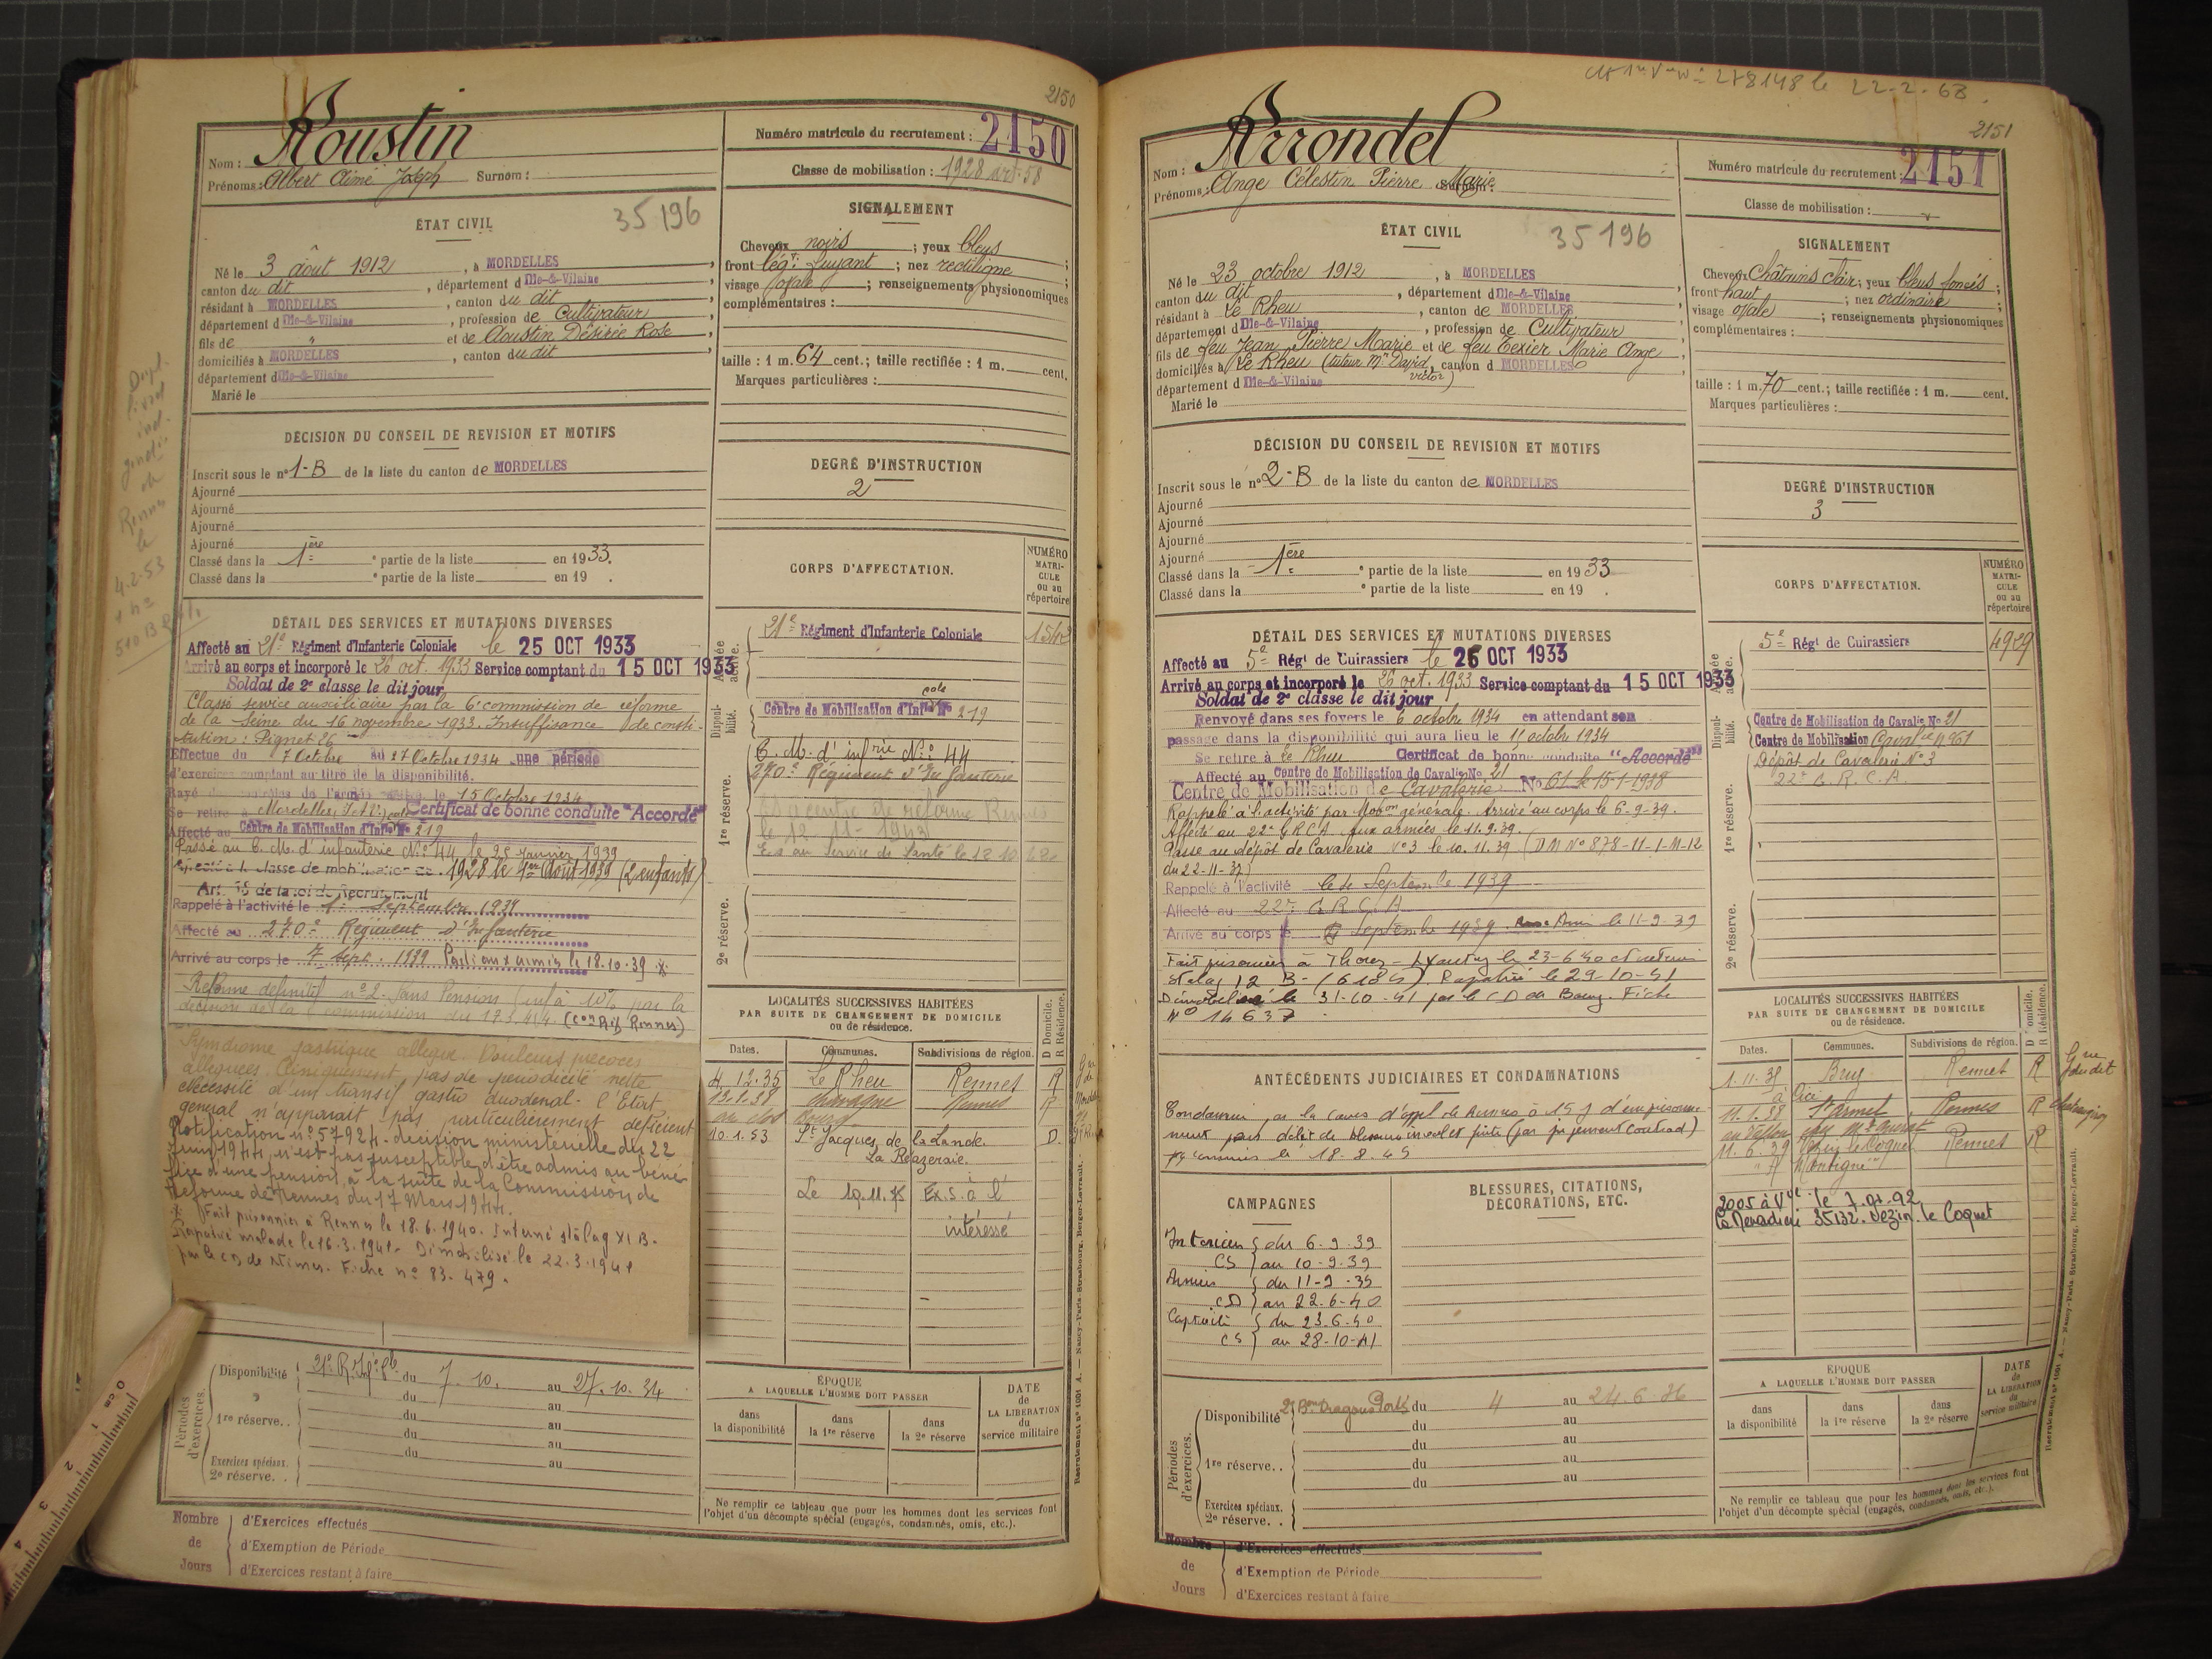 2150
Nom : Aoustin
Prénoms : Albert Aimé Joseph Surnom :
Numéro matricule du recrutement : 2150
Classe de mobilisation : 1928 art. 58
ÉTAT CIVIL
35196
Né le 3 août 1912, à MORDELLES,
canton du dit, département d Ille-&-Vilaine
résidant à MORDELLES, canton du dit
département d Ille-&-Vilaine, profession de Cultivateur
fils de " et de Aoustin Désirée Rose,
domiciliés à MORDELLES, canton du dit,
département d Ille-&-Vilaine
Marié le
SIGNALEMENT
Cheveux noirs ; yeux bleus ;
front lég.t fuyant ; nez rectiligne ;
visage ovale ; renseignements physionomiques
complémentaires :
taille : 1 m. 64 cent.; taille rectifiée : 1 m. cent.
Marques particulières :
DÉCISION DU CONSEIL DE REVISION ET MOTIFS
Inscrit sous le n° 1-B de la liste du canton de MORDELLES
Ajourné
Ajourné
Ajourné
Ajourné
Classé dans la 1ère e partie de la liste en 1933.
Classé dans la e partie de la liste en 19 .
DEGRÉ D'INSTRUCTION
2
CORPS D'AFFECTATION.
NUMÉRO MATRI-CULE ou au répertoire
DÉTAIL DES SERVICES ET MUTATIONS DIVERSES
Affecté au 21e Régiment d'Infanterie Coloniale le 25 OCT 1933
Arrivé au corps et incorporé le 26 oct. 1933 Service comptant du 15 OCT 1933
Soldat de 2e classe le dit jour
Classé service auxiliaire par la 6e commission de réforme
de la Seine du 16 novembre 1933. Insuffisance de consti-
tution : Pignet 26
Effectue du 7 Octobre au 27 Octobre 1934 une période
d'exercices comptant au titre de la disponibilité.
Rayé des contrôles de l'armée active le 15 Octobre 1934
Se retire à Mordelles, Certificat de bonne conduite "Accordé"
Affecté au Centre de Mobilisation d'Infie N° 219
Passé au C. M. d'infanterie N° 44 le 25 Janvier 1939
classe de mobilisation de 1928 le 1er Août 1939 (2 enfants)
Art. 58 de la loi de Recrutement
Rappelé à l'activité le 1er Septembre 1939
Affecté au 270e Régiment d'Infanterie
Arrivé au corps le 7 sept. 1939 Parti aux armées le 18.10.39 x
Réforme définitif n° 2 Sans Pension inf. à 10% par la
décision de la commission du 17.3.44. (Con Rif Rennes)
Syndrome gastrique allégué. Douleurs précoces
alléguées. Cliniquement, pas de périodicité nette
nécessité d'un transit gastro duodénal - l'Etat
général n'apparait pas particulièrement déficient
Notification n° 57924 - décision ministérielle du 22
Juin 1944, n'est pas susceptible d'être admis au béné-
fice d'une pension, à la suite de la Commission de
Réforme de Rennes du 17 Mars 1944.
x Fait prisonnier à Rennes le 18.6.1940. Interné stalag XI B.
Rapatrié malade le 16.3.1941. Démobilisé le 22.3.1941
par le CD de Nîmes. Fiche n° 83.479.
Armée active.
21e Régiment d'Infanterie Coloniale
Disponi-bilité.
Centre de Mobilisation d'Infie N° 219
1re réserve.
C. M. d'infrie N° 44
270e Régiment d'Infanterie
2e réserve.
LOCALITÉS SUCCESSIVES HABITÉES
PAR SUITE DE CHANGEMENT DE DOMICILE
ou de résidence.
D Domicile. R Résidence.
Dates. Communes. Subdivisions de région.
4.12.35 Le Rheu Rennes R
12.1.38 Chavagne Rennes R
10.1.53 St Jacques de la Lande. D.
Ex. S. à l'
intéressé
Périodes d'exercices.
Disponibilité du 7.10. au 27.10.34
du au
1re réserve.. du au
du au
du au
Exercices spéciaux.
2e réserve. .
ÉPOQUE
A LAQUELLE L'HOMME DOIT PASSER
dans la disponibilité
dans la 1re réserve
dans la 2e réserve
DATE de LA LIBÉRATION du service militaire
Ne remplir ce tableau que pour les hommes dont les services font
l'objet d'un décompte spécial (engagés, condamnés, omis, etc.).
Nombre de Jours
d'Exercices effectués
d'Exemption de Période
d'Exercices restant à faire
Recrutement n° 1001 A. — Nancy-Paris-Strasbourg, Berger-Levrault.
0 cm 1 2 3 4
278148 le 22-2-63.
2151
Nom : Arrondel
Prénoms : Ange Célestin Pierre Marie Surnom :
Numéro matricule du recrutement : 2151
Classe de mobilisation :
ÉTAT CIVIL
35196
Né le 23 octobre 1912, à MORDELLES
canton du dit, département d Ille-&-Vilaine
résidant à Le Rheu, canton de MORDELLES
département d Ille-&-Vilaine, profession de Cultivateur
fils de feu Jean Pierre Marie et de feu Texier Marie Ange
domiciliés à Le Rheu (tuteur Mr David victor), canton d MORDELLES
département d Ille-&-Vilaine
Marié le
SIGNALEMENT
Cheveux Châtains clair ; yeux bleus foncés ;
front haut ; nez ordinaire ;
visage ovale ; renseignements physionomiques
complémentaires :
taille : 1 m. 70 cent.; taille rectifiée : 1 m. cent.
Marques particulières :
DÉCISION DU CONSEIL DE REVISION ET MOTIFS
Inscrit sous le n° 2-B de la liste du canton de MORDELLES
Ajourné
Ajourné
Ajourné
Ajourné
Classé dans la 1ère e partie de la liste en 1933
Classé dans la e partie de la liste en 19 .
DEGRÉ D'INSTRUCTION
3
CORPS D'AFFECTATION.
NUMÉRO MATRI-CULE ou au répertoire
DÉTAIL DES SERVICES ET MUTATIONS DIVERSES
Affecté au 5e Régt de Cuirassiers le 25 OCT 1933
Arrivé au corps et incorporé le 26 oct. 1933 Service comptant du 15 OCT 1933
Soldat de 2e classe le dit jour
Renvoyé dans ses foyers le 6 octobre 1934 en attendant son
passage dans la disponibilité qui aura lieu le 15 octobre 1934
Se retire à Le Rheu Certificat de bonne conduite "Accordé"
Affecté au Centre de Mobilisation de Cavalie No 21
Centre de Mobilisation de Cavalerie No 61 le 15-1-1938
Rappelé à l'activité par Mobon générale. Arrivé au corps le 6-9-39.
Affecté au 22e GRCA. Aux armées le 11.9.39.
Passé au dépôt de Cavalerie N° 3 le 10.11.39 (DM N° 878-11-1-M-12
du 22-11-37)
Rappelé à l'activité le 4 Septembre 1939
Affecté au 22e G R C A
Arrivé au corps le 6 Septembre 1939. le 11-9-39
Fait prisonnier à le 23-6-40 et interné
Stalag 12 B - (6185). Rapatrié le 29-10-41
Démobilisé le 31-10-41 par le CD de Bourg. Fiche
N° 14637
Armée active.
5e Régt de Cuirassiers 4929
Disponi-bilité.
Centre de Mobilisation de Cavalie No 21
Centre de Mobilisation Cavalie n° 61
1re réserve.
Dépôt de Cavalerie N° 3
22e G. R. C. A.
2e réserve.
ANTÉCÉDENTS JUDICIAIRES ET CONDAMNATIONS
Condamné par la cour d'appel de Rennes à 15 j d'emprisonne-
ment pour délit de blessures invol. et fuite (par jugement contrad)
commis le 18-8-45
CAMPAGNES
Intérieur CS du 6-9-39
au 10-9-39
Armées CD du 11-9-39
au 22-6-40
Captivité CS du 23-6-40
au 28-10-41
BLESSURES, CITATIONS,
DÉCORATIONS, ETC.
LOCALITÉS SUCCESSIVES HABITÉES
PAR SUITE DE CHANGEMENT DE DOMICILE
ou de résidence.
D Domicile. R Résidence.
Dates. Communes. Subdivisions de région.
1.11.35 Bruz Rennes R
11.1.38 St Armel Rennes R
11.6.39 Vezin le Coquet Rennes R
35132. Vezin le Coquet
Périodes d'exercices.
Disponibilité Dragons Portés du 4 au 24.6.36
du au
du au
1re réserve.. du au
du au
Exercices spéciaux.
2e réserve. .
ÉPOQUE
A LAQUELLE L'HOMME DOIT PASSER
dans la disponibilité
dans la 1re réserve
dans la 2e réserve
DATE de LA LIBÉRATION du service militaire
Ne remplir ce tableau que pour les hommes dont les services font
l'objet d'un décompte spécial (engagés, condamnés, omis, etc.).
Nombre de Jours
d'Exercices effectués
d'Exemption de Période
d'Exercices restant à faire
Recrutement n° 1001 A. — Nancy-Paris-Strasbourg, Berger-Levrault.